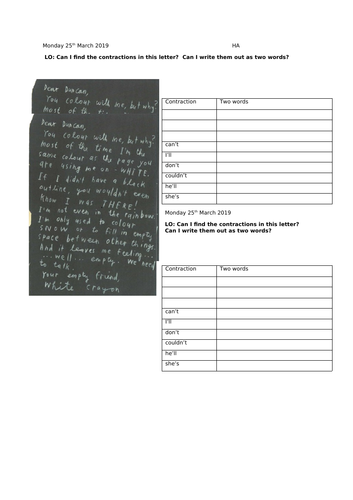 Monday 25th March 2019 HA
LO: Can I find the contractions in this letter? Can I write them out as two words?
Dear Duncan,
You colour with me, but why?
most of the
Dear Duncan,
You colour with me, but why?
most of the time I'm the
same colour as the page you
are using me on - WHITE.
If I didn't have a black
outline, you wouldn't even
know I was THERE!
I'm not even in the rainbow
I'm only used to colour
SNOW or to fill in empty
space between other things
And it leaves me feeling...
...well... empty. We need
to talk.
Your empty friend,
White Crayon
Contraction Two words
can't
I'll
don't
couldn't
he'll
she's
Monday 25th March 2019
LO: Can I find the contractions in this letter?
Can I write them out as two words?
Contraction Two words
can't
I'll
don't
couldn't
he'll
she's